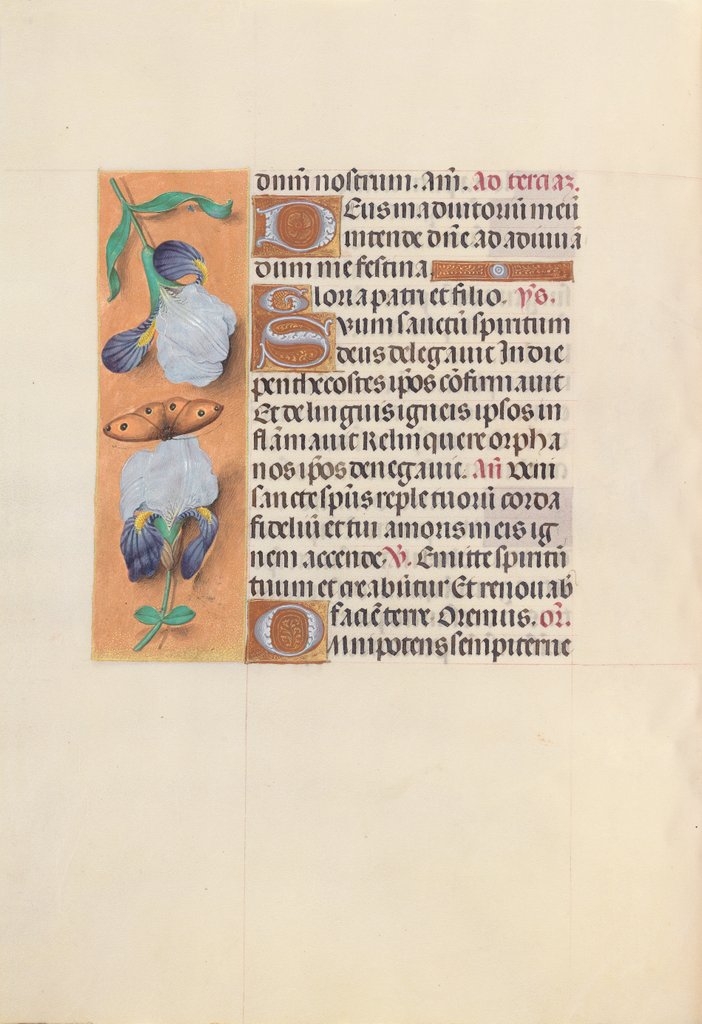 dnm̄ nostrum. Am̄. Ad terciaz.
Deus in adiutoriū meū
intende dn̄e ad adiuuā
dum me festina.
Gloria patri et filio. ỹs.
Suum sanctū spiritum
deus delegauit In die
penthecostes ip̄os cōfirmauit
Et de linguis igneis ipsos in
flāmauit Relinquere orpha
nos ip̄os denegauit. An̄ veni
sancte sp̄us reple tuorū corda
fideliū et tui amoris in eis ig
nem accende V̄. Emitte spiritū
tuum et creabūtur Et renouab
faciē terre. Oremus. or̄.
Omnipotens sempiterne